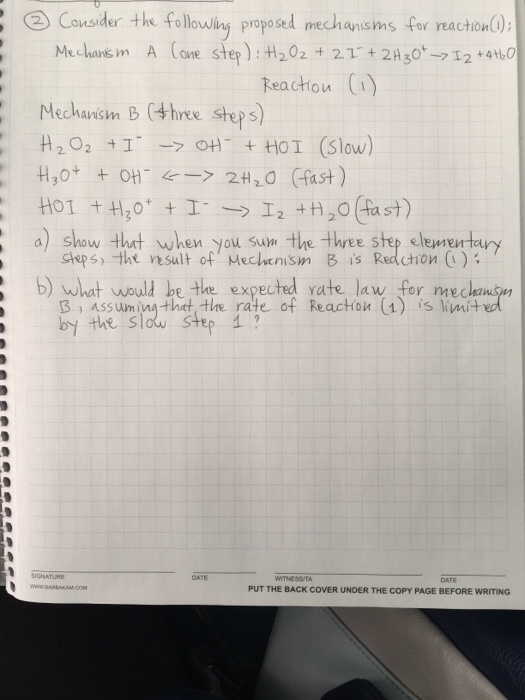 ② Consider the following proposed mechanisms for reaction(1):
Mechanism A (one step): H₂O₂ + 2I⁻ + 2H₃O⁺ → I₂ + 4H₂O
Reaction (1)
Mechanism B (three steps)
H₂O₂ + I⁻ → OH⁻ + HOI (slow)
H₃O⁺ + OH⁻ <-> 2H₂O (fast)
HOI + H₃O⁺ + I⁻ → I₂ + H₂O (fast)
a) show that when you sum the three step elementary
steps, the result of Mechanism B is Reaction (1):
b) what would be the expected rate law for mechanism
B, assuming that the rate of Reaction (1) is limited
by the slow step 1?
SIGNATURE DATE WITNESS/TA DATE
WWW.BARBAKAM.COM PUT THE BACK COVER UNDER THE COPY PAGE BEFORE WRITING